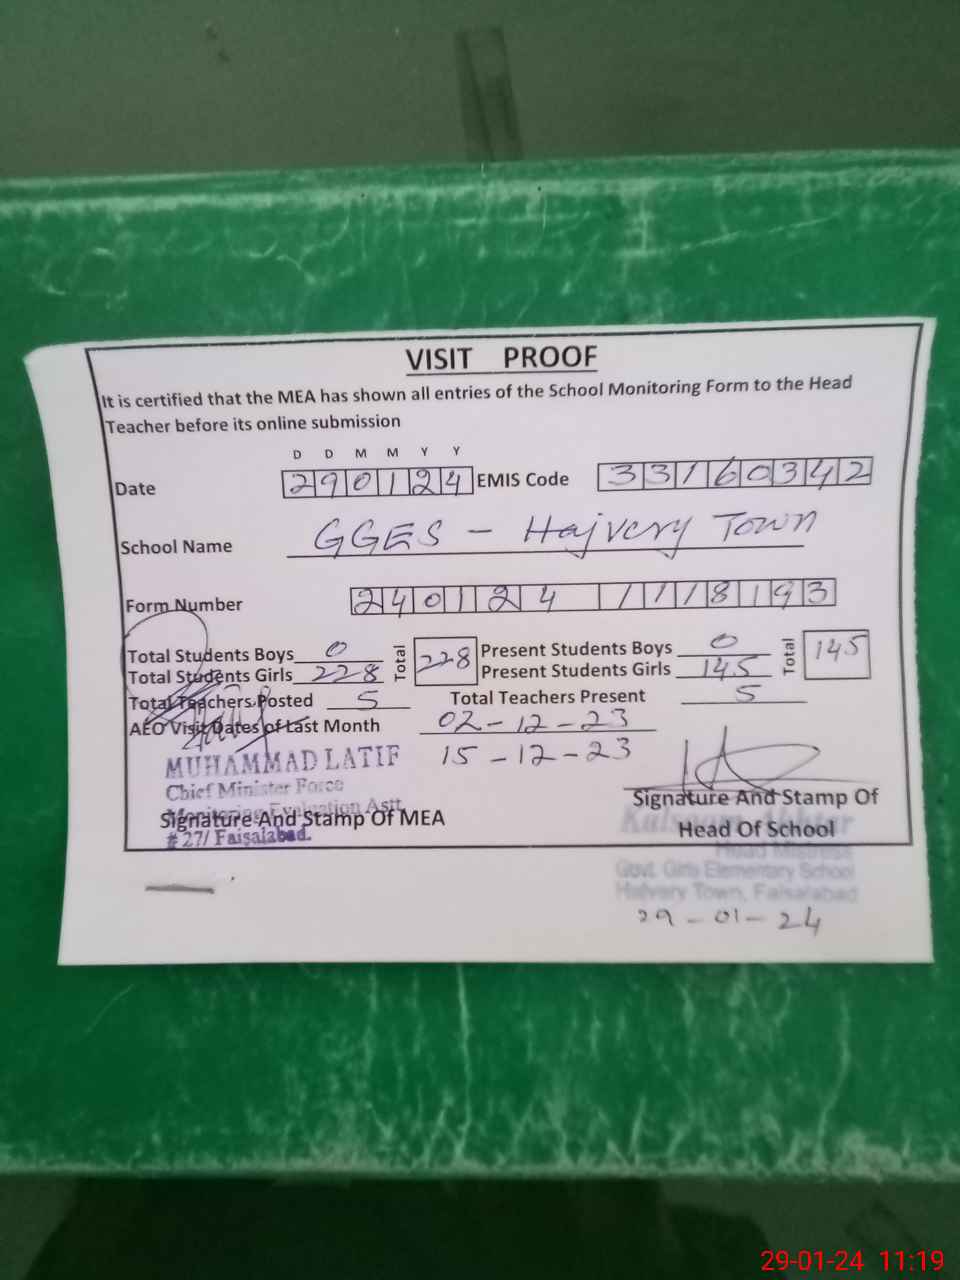 VISIT PROOF
It is certified that the MEA has shown all entries of the School Monitoring Form to the Head
Teacher before its online submission
D D M M Y Y
Date 290124 EMIS Code 33160342
School Name GGES - Hajvery Town
Form Number 240124 1118193
Total Students Boys 0 Total 228 Present Students Boys 0 Total 145
Total Students Girls 228 Present Students Girls 145
Total Teachers Posted 5 Total Teachers Present 5
AEO Visit Dates of Last Month 02-12-23
15-12-23
MUHAMMAD LATIF
Chief Minister Force
Monitoring Evaluation Astt
# 27/ Faisalabad.
Signature And Stamp Of MEA
Signature And Stamp Of
Head Of School
Kulsoom Akhtar
Head Mistress
Govt. Girls Elementary School
Hajvery Town, Faisalabad
29-01-24
29-01-24 11:19